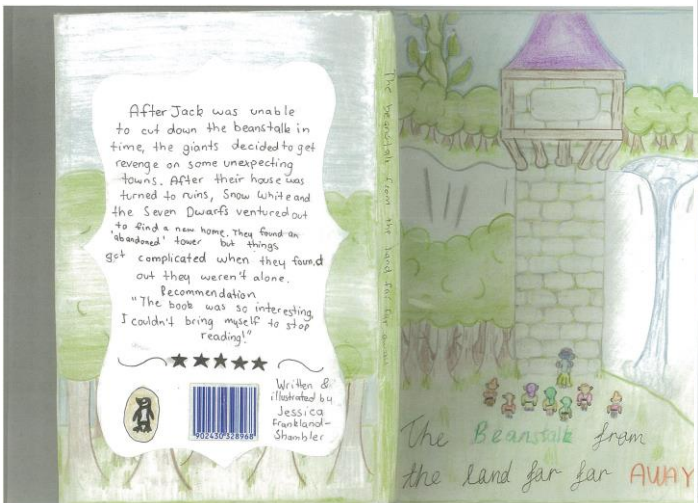 After Jack was unable
to cut down the beanstalk in
time, the giants decided to get
revenge on some unexpecting
towns. After their house was
turned to ruins, Snow White and
the Seven Dwarfs ventured out
to find a new home. They found an
'abandoned' tower but things
got complicated when they found
out they weren't alone.
Recommendation
"The book was so interesting,
I couldn't bring myself to stop
reading!"
Written &
illustrated by
Jessica
Frankland-
Shambler
902430 328968
The beanstalk from the land far far away
The Beanstalk from
the land far far AWAY